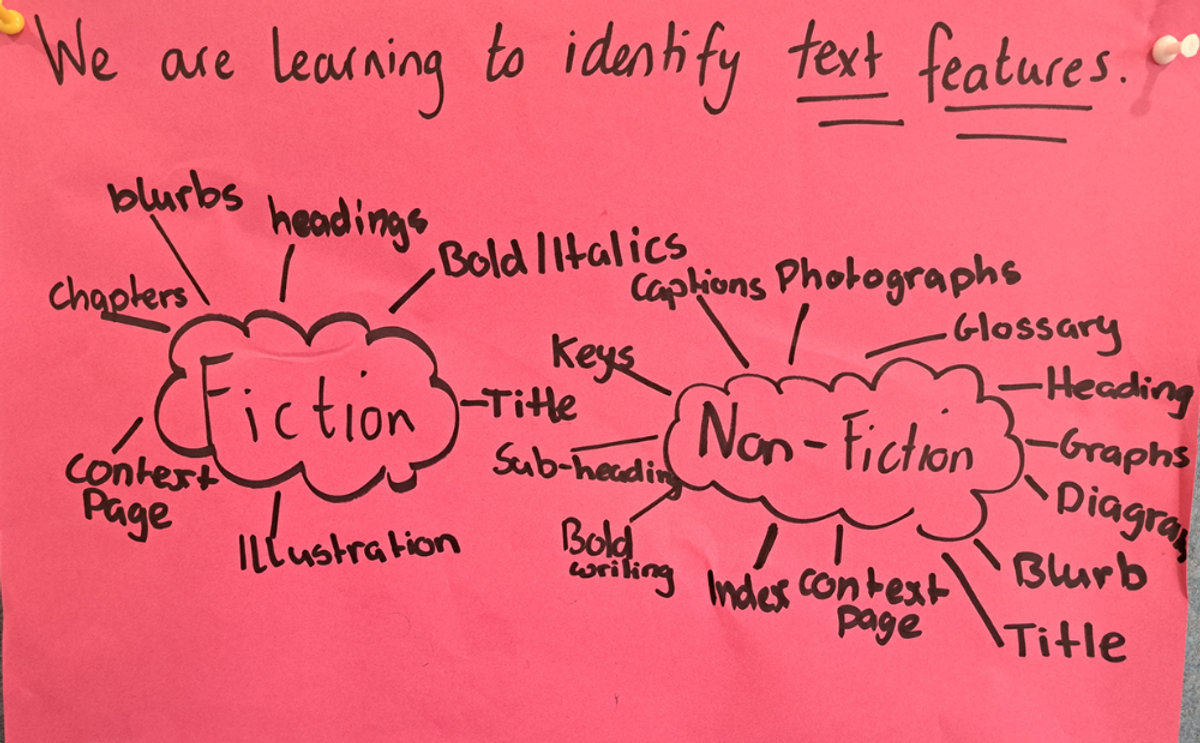 We are learning to identify text features.
blurbs
headings
Bold/Italics
Chapters
Fiction
Title
Context
Page
Illustration
Captions
Photographs
Glossary
Keys
Heading
Non-Fiction
Sub-heading
Graphs
Diagram
Bold
writing
Index
Context
page
Blurb
Title